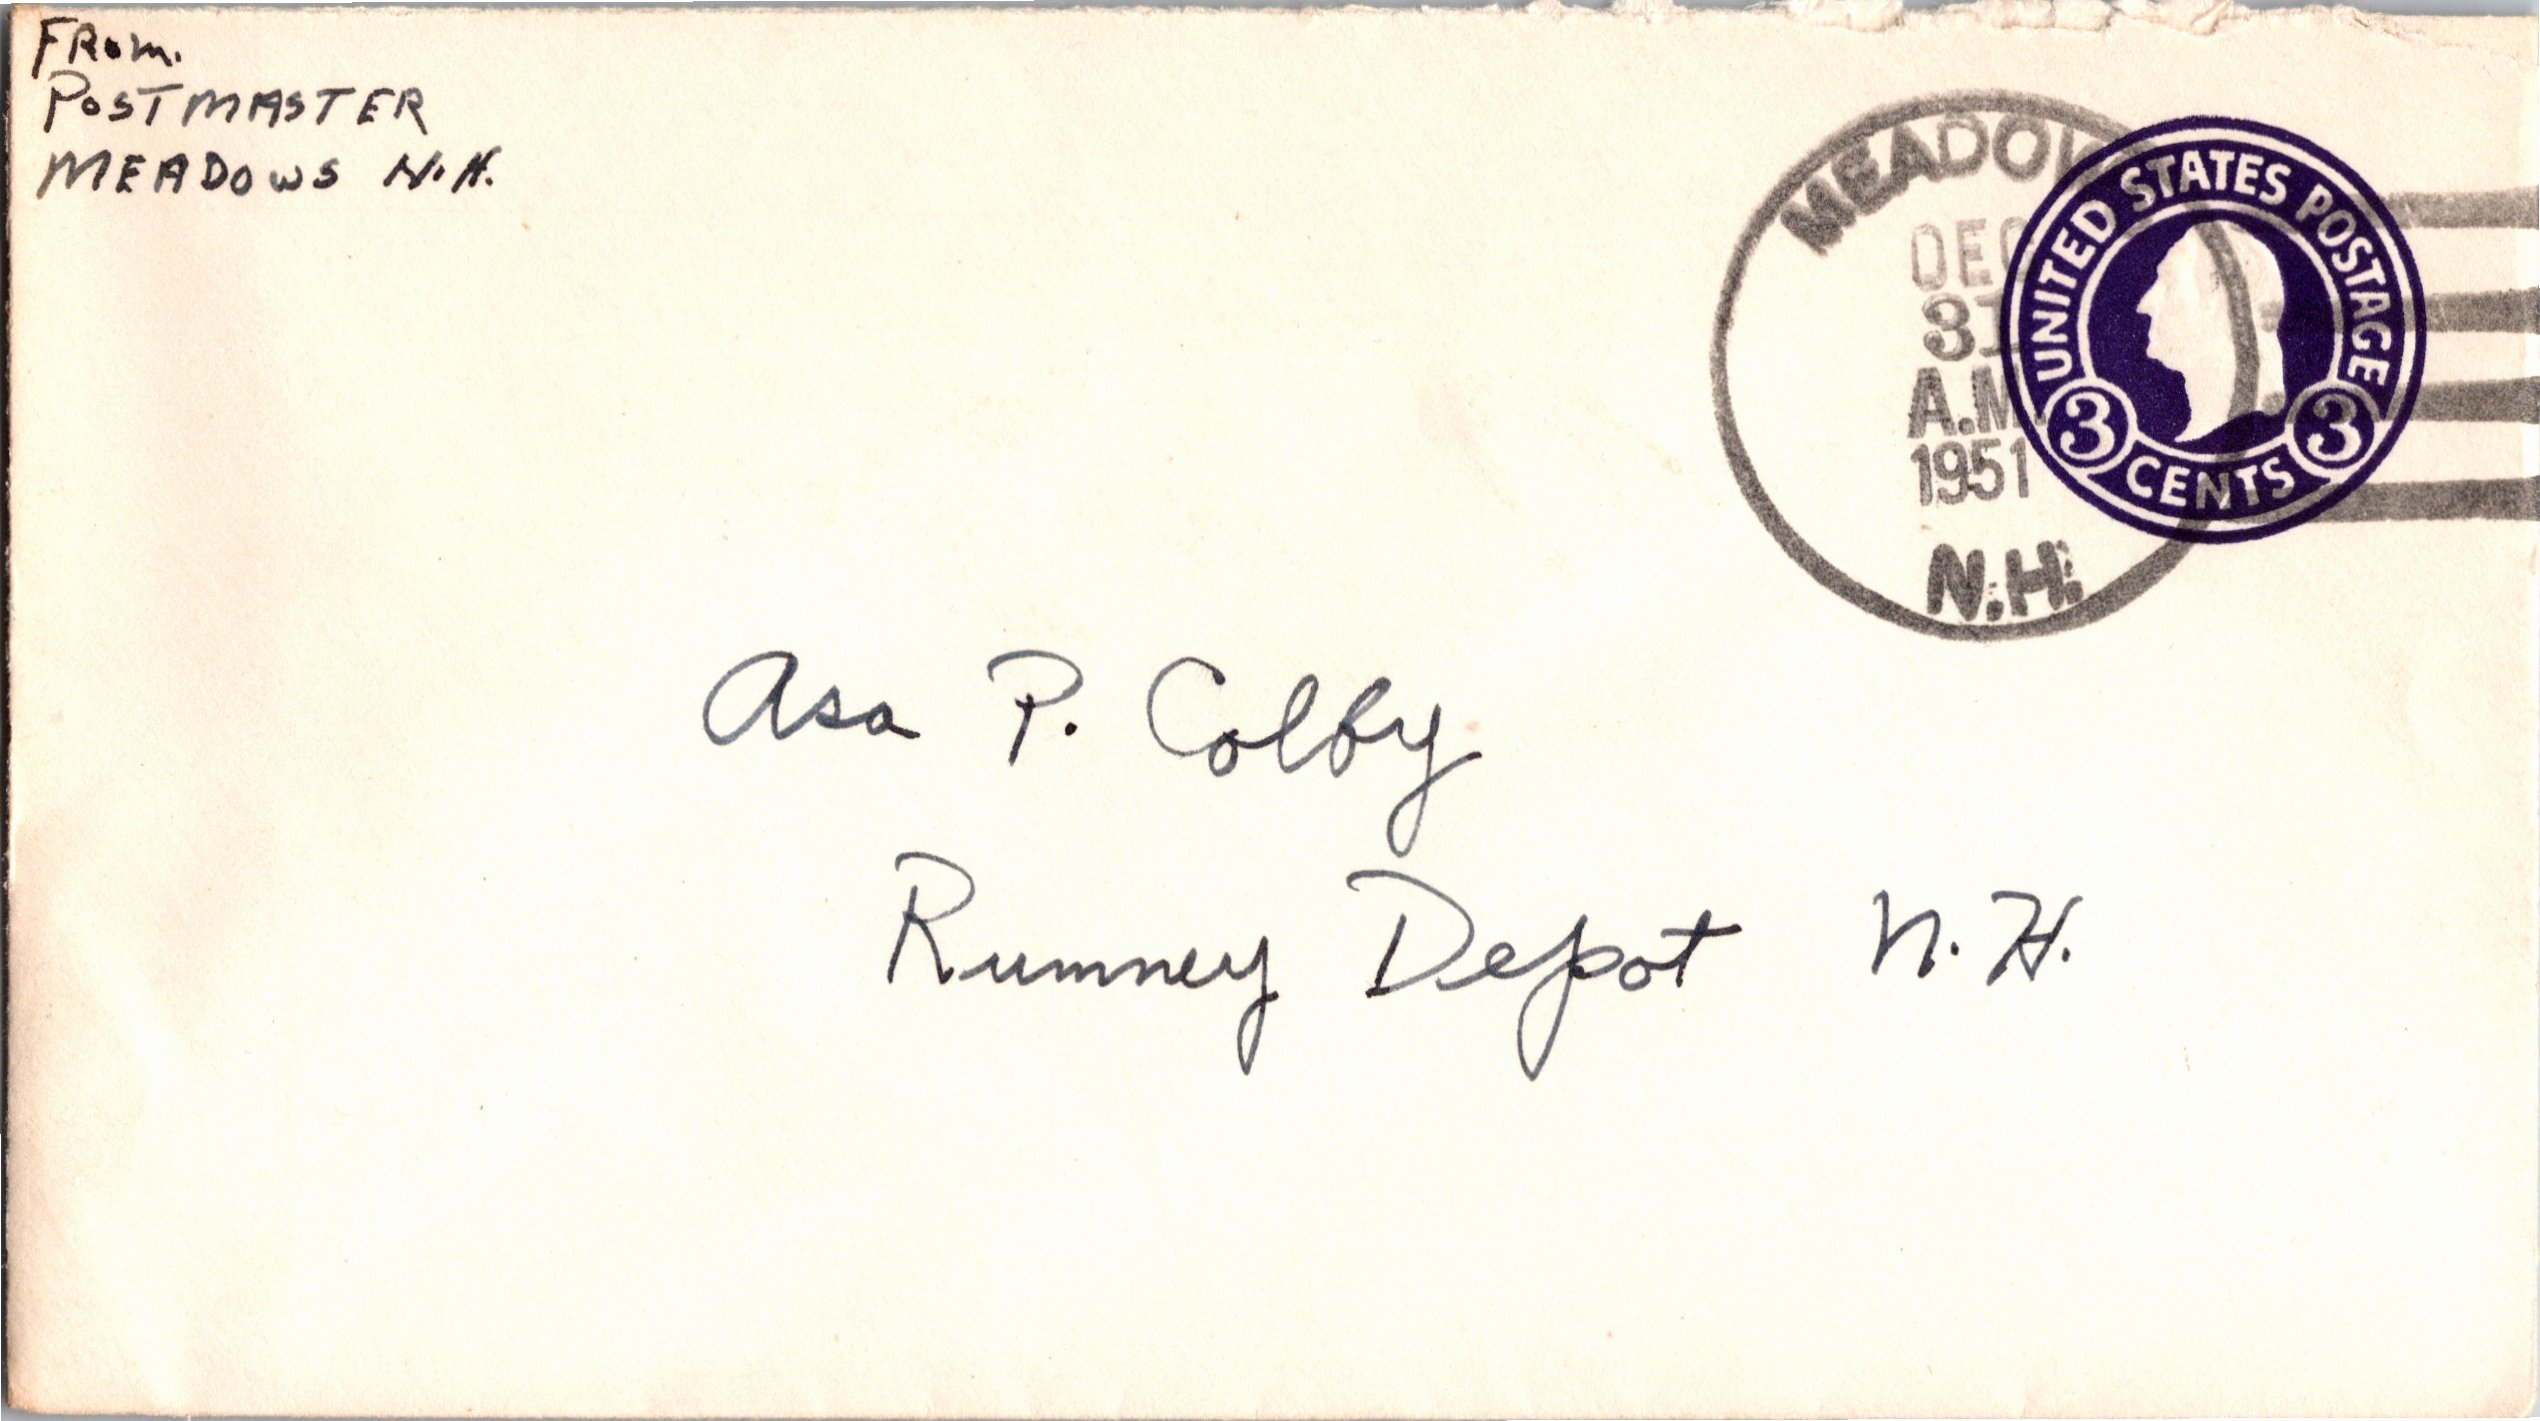 From.
POSTMASTER
MEADOWS N.H.
MEADOWS
DEC
31
A.M.
1951
N.H.
UNITED STATES POSTAGE
3 CENTS 3
Asa P. Colby
Rumney Depot N.H.